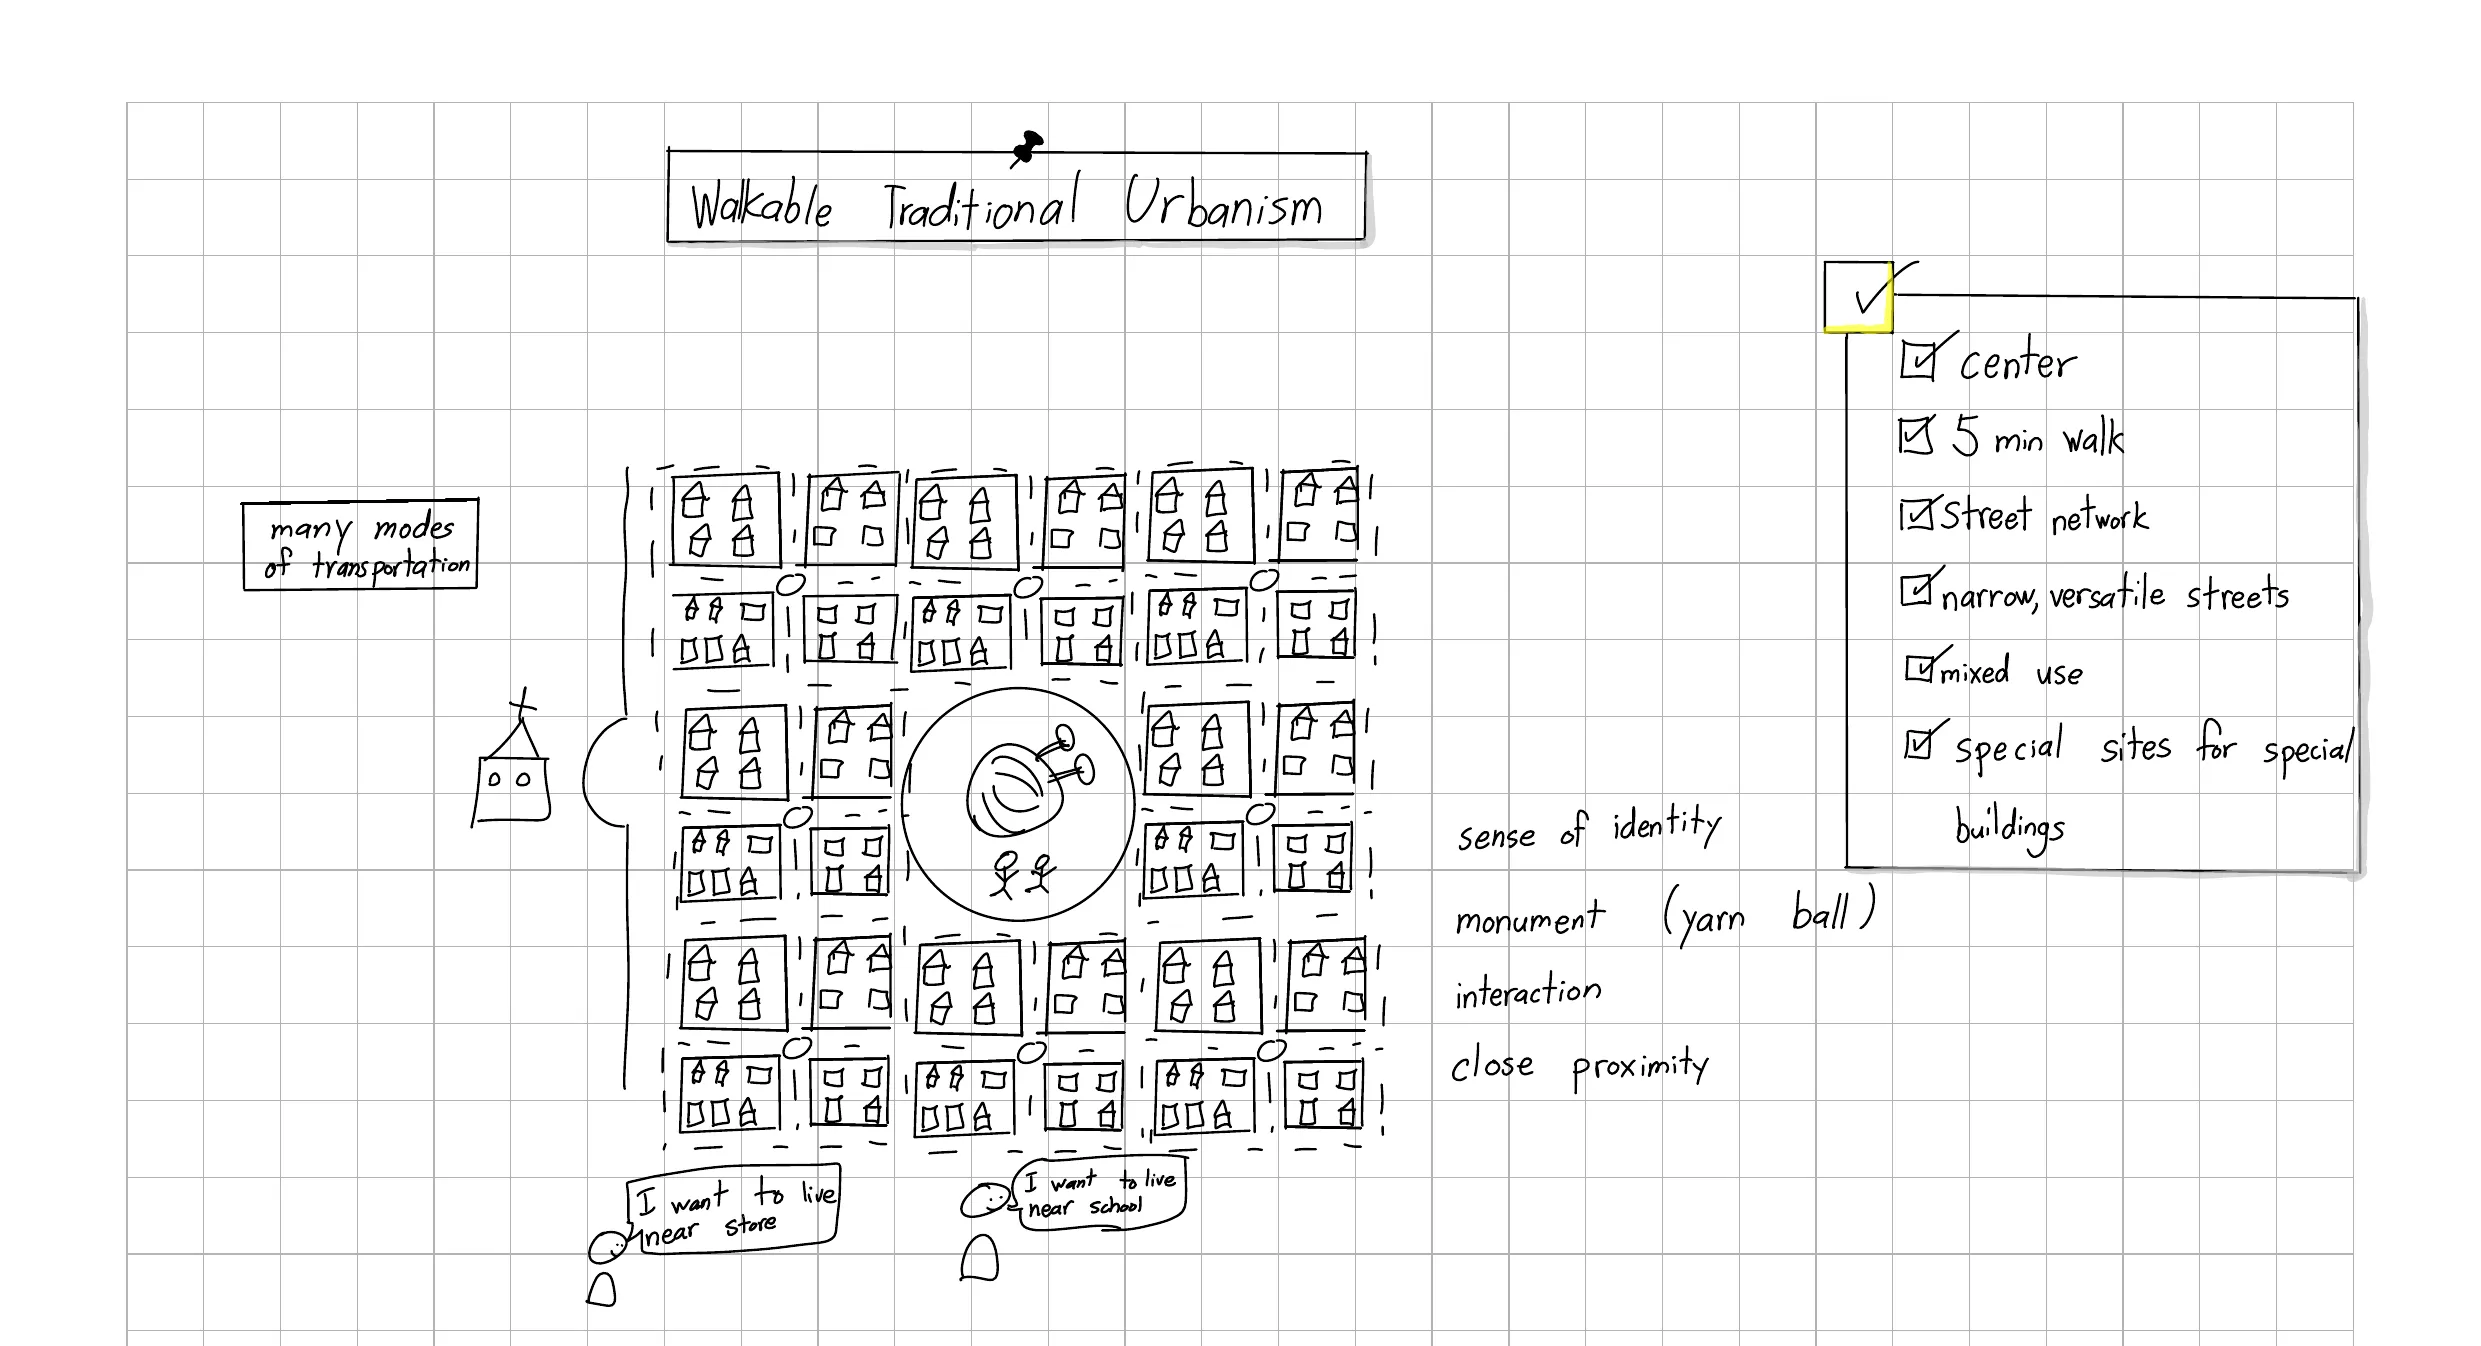 Walkable Traditional Urbanism
many modes
of transportation
center
5 min walk
Street network
narrow, versatile streets
mixed use
special sites for special
buildings
sense of identity
monument (yarn ball)
interaction
close proximity
I want to live
near store
I want to live
near school